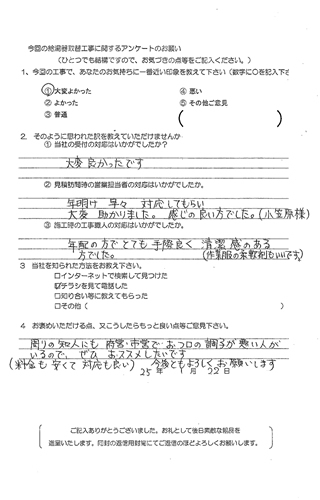 今回の給湯器取替工事に関するアンケートのお願い
(ひとつでも結構ですので、お気づきの点等をご記入ください。)
1、今回の工事で、あなたのお気持ちに一番近い印象を教えて下さい(数字に○を記入下さ
①大変よかった ④悪い
②よかった ⑤その他ご意見
③普通 ( )
2. そのように思われた訳を教えていただけませんか
① 当社の受付の対応はいかがでしたか?
大変良かったです
② 見積訪問時の営業担当者の対応はいかがでしたか。
年明け早々対応してもらい
大変助かりました。感じの良い方でした。(小笠原様)
③ 施工時の工事職人の対応はいかがでしたか。
年配の方でとても手際良く清潔感のある
方でした。(作業服の柔軟剤もいいです。)
3 当社を知られた方法をお教え下さい。
□インターネットで検索して見つけた
☑チラシを見て電話した
□知り合い等に教えてもらった
□その他( )
4 お褒めいただける点、又こうしたらもっと良い点等ご意見下さい。
周りの知人にも府営・市営でおフロの調子が悪い人が
いるので、ぜひおススメしたいです
(料金も安くて対応も良い) 今後ともよろしくお願いします
25年 1月 22日
ご記入ありがとうございました。お礼として後日素敵な粗品を
返送いたします。同封の返信用封筒にてご返信のほどよろしくお願いします。